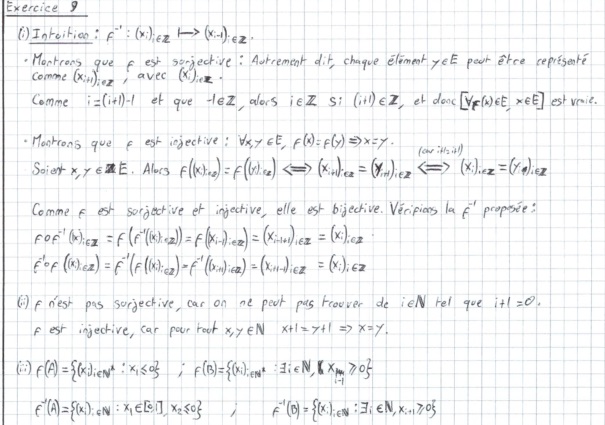 Exercice 9
(i) Intuition : f⁻¹ : (xᵢ)ᵢ∈ℤ ↦ (xᵢ₋₁)ᵢ∈ℤ.
• Montrons que f est surjective : Autrement dit, chaque élément y∈E peut être représenté
comme (xᵢ₊₁)ᵢ∈ℤ, avec (xᵢ)ᵢ∈ℤ.
Comme i=(i+1)-1 et que -1∈ℤ, alors i∈ℤ si (i+1)∈ℤ, et donc [∀f(x)∈E, x∈E] est vraie.
• Montrons que f est injective : ∀x,y∈E, f(x)=f(y) ⇒ x=y.
Soient x,y ∈ E. Alors f((xᵢ)ᵢ∈ℤ) = f((yᵢ)ᵢ∈ℤ) ⟺ (xᵢ₊₁)ᵢ∈ℤ = (yᵢ₊₁)ᵢ∈ℤ ⟺ (car i+1=i+1) (xᵢ)ᵢ∈ℤ = (yᵢ)ᵢ∈ℤ
Comme f est surjective et injective, elle est bijective. Vérifions la f⁻¹ proposée :
f∘f⁻¹(xᵢ)ᵢ∈ℤ = f(f⁻¹((xᵢ)ᵢ∈ℤ)) = f(xᵢ₋₁)ᵢ∈ℤ = (xᵢ₋₁₊₁)ᵢ∈ℤ = (xᵢ)ᵢ∈ℤ.
f⁻¹∘f((xᵢ)ᵢ∈ℤ) = f⁻¹(f((xᵢ)ᵢ∈ℤ) = f⁻¹((xᵢ₊₁)ᵢ∈ℤ) = (xᵢ₊₁₋₁)ᵢ∈ℤ = (xᵢ)ᵢ∈ℤ
(ii) f n'est pas surjective, car on ne peut pas trouver de i∈ℕ tel que i+1=0.
f est injective, car pour tout x,y∈ℕ x+1=y+1 => x=y.
(iii) f(A)={(xᵢ)ᵢ∈ℕ* : x₁≤0} ; f(B)={(xᵢ)ᵢ∈ℕ* : ∃i∈ℕ, xᵢ₋₁≥0}
f⁻¹(A)={(xᵢ)ᵢ∈ℕ : x₁∈[0,1], x₂≤0} ; f⁻¹(B)={(xᵢ)ᵢ∈ℕ : ∃i∈ℕ, xᵢ₊₁≥0}